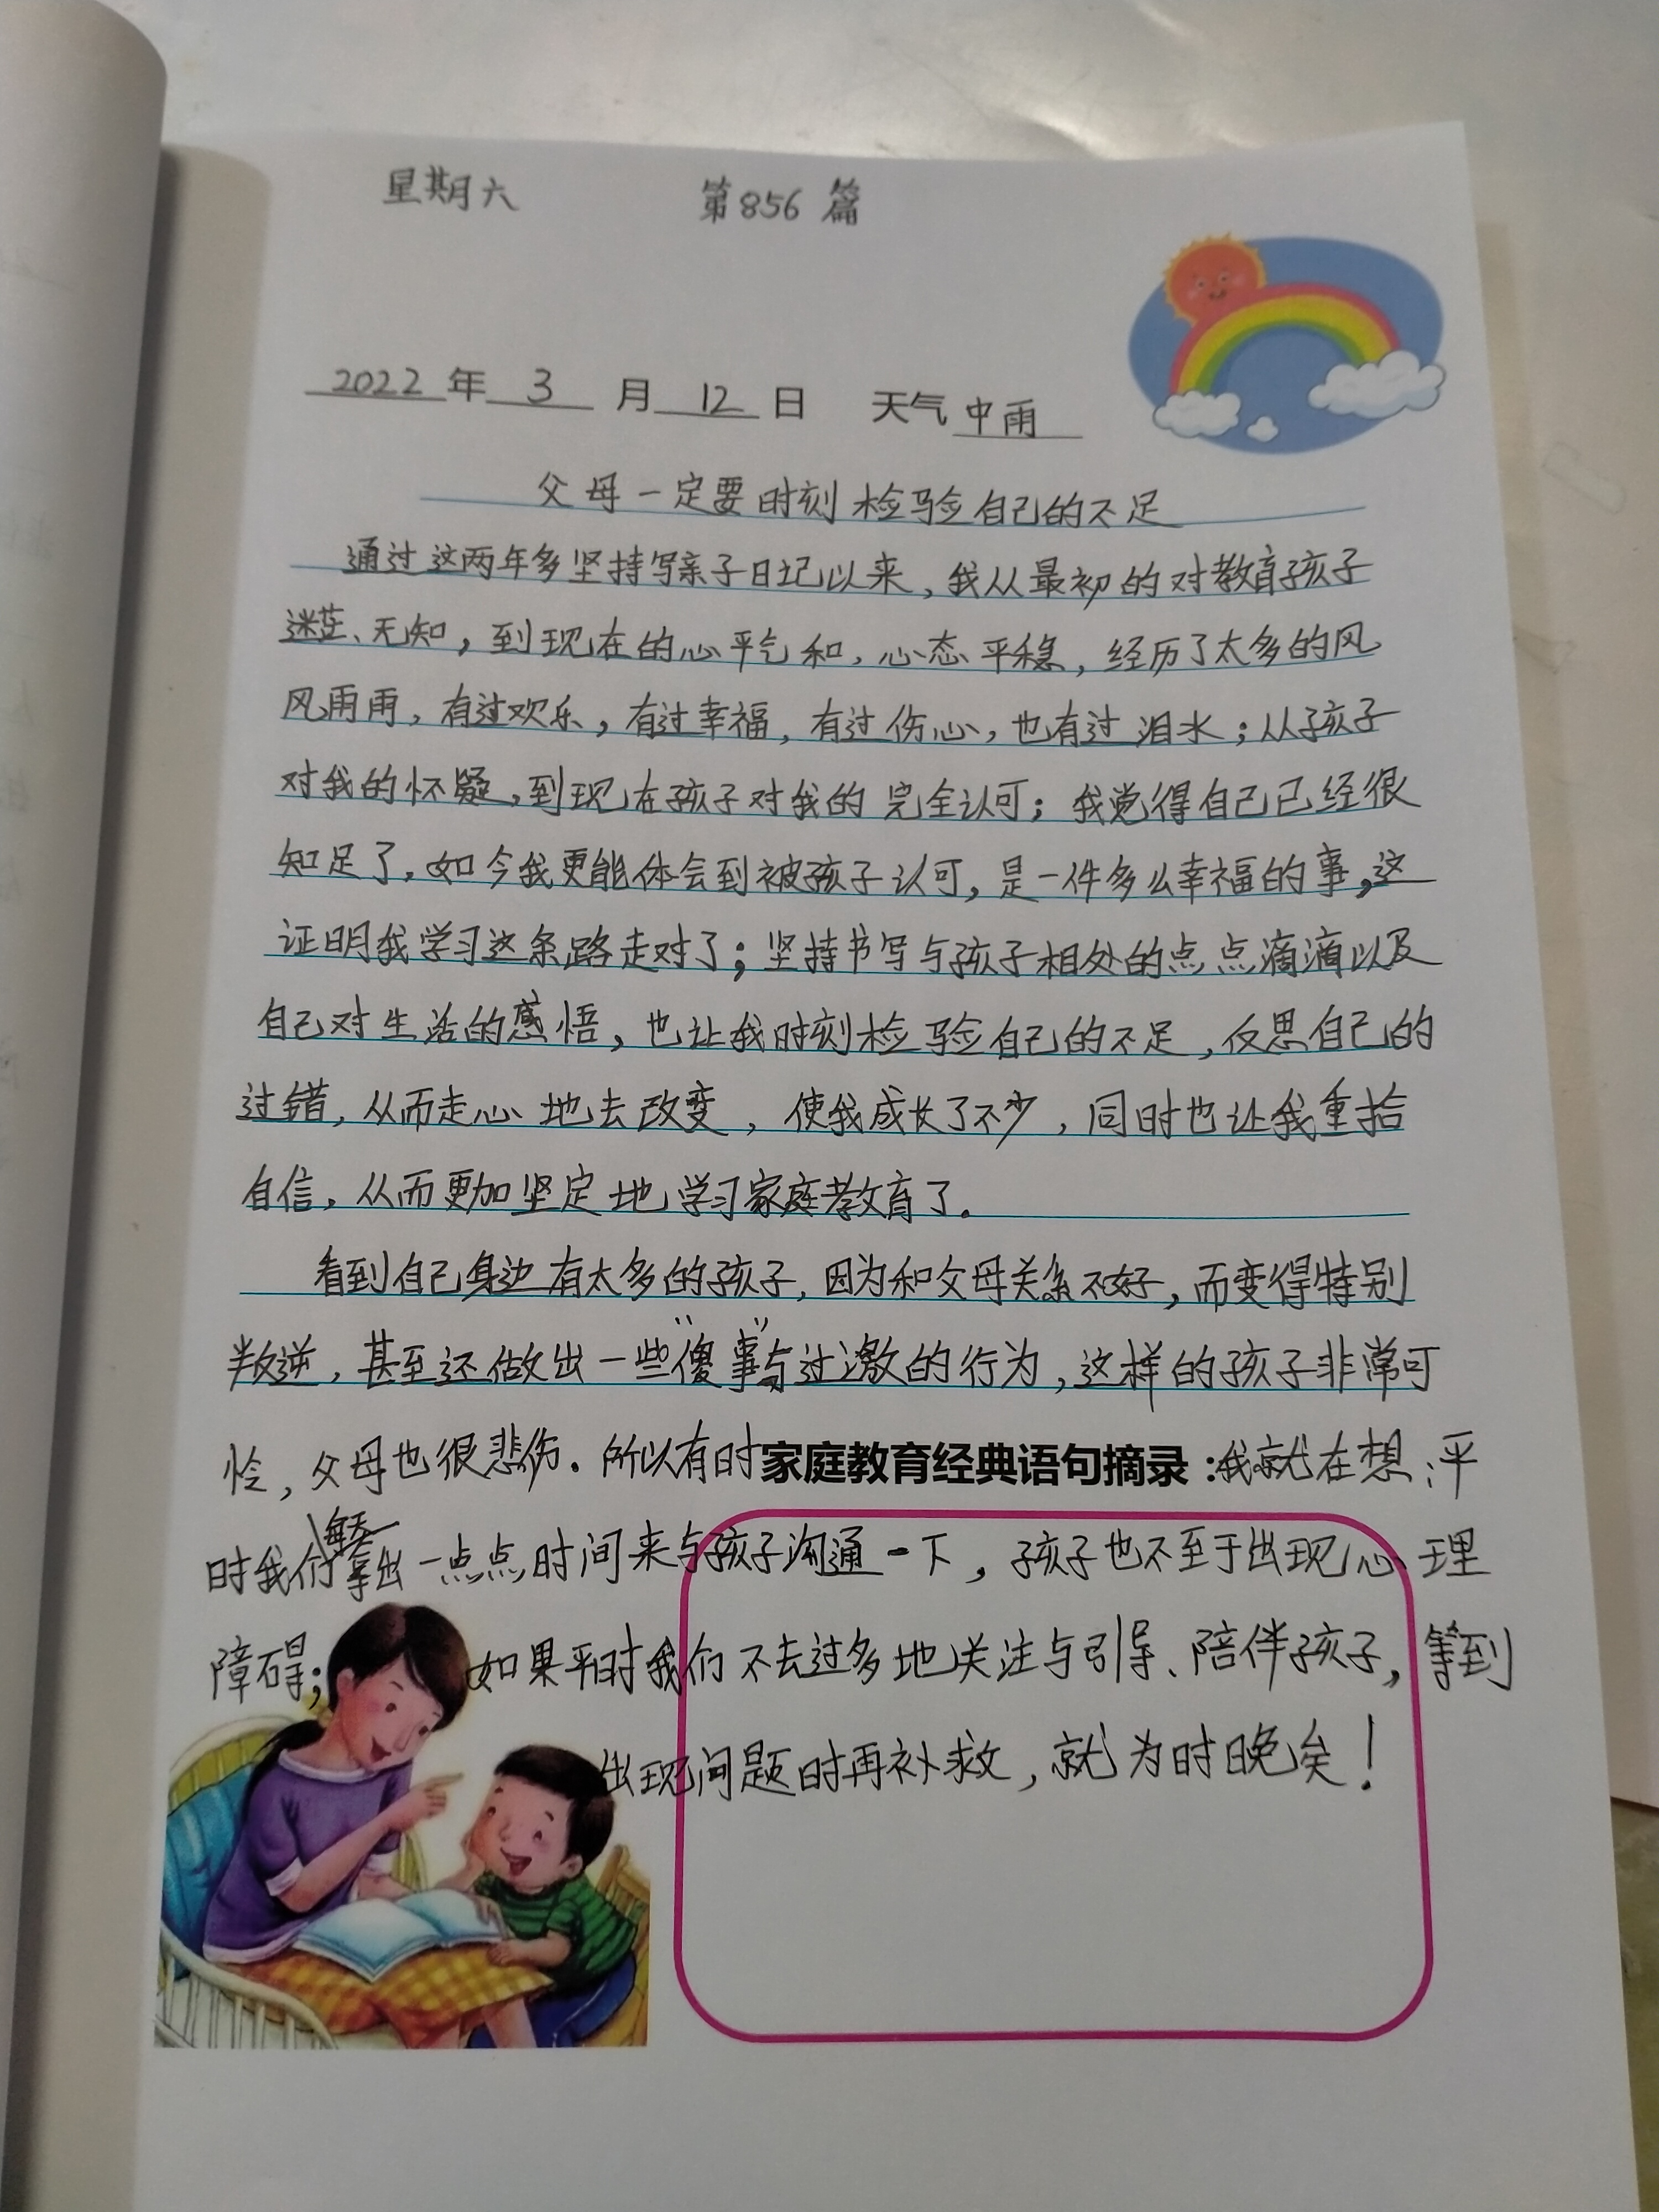 星期六 第856篇
2022年3月12日 天气中雨
父母一定要时刻检验自己的不足
通过这两年多坚持写亲子日记以来，我从最初的对教育孩子
迷茫、无知，到现在的心平气和，心态平稳，经历了太多的风
风雨雨，有过欢乐，有过幸福，有过伤心，也有过泪水；从孩子
对我的怀疑，到现在孩子对我的完全认可；我觉得自己已经很
知足了，如今我更能体会到被孩子认可，是一件多么幸福的事，这
证明我学习这条路走对了；坚持书写与孩子相处的点点滴滴以及
自己对生活的感悟，也让我时刻检验自己的不足，反思自己的
过错，从而走心地去改变，使我成长了不少，同时也让我重拾
自信，从而更加坚定地学习家庭教育了。
看到自己身边有太多的孩子，因为和父母关系不好，而变得特别
叛逆，甚至还做出一些“傻事”与过激的行为，这样的孩子非常可
怜，父母也很悲伤。所以有时家庭教育经典语句摘录：我就在想：平
时我们每天拿出一点点时间来与孩子沟通一下，孩子也不至于出现心理
障碍；如果平时我们不去过多地关注与引导、陪伴孩子，等到
出现问题时再补救，就为时晚矣！